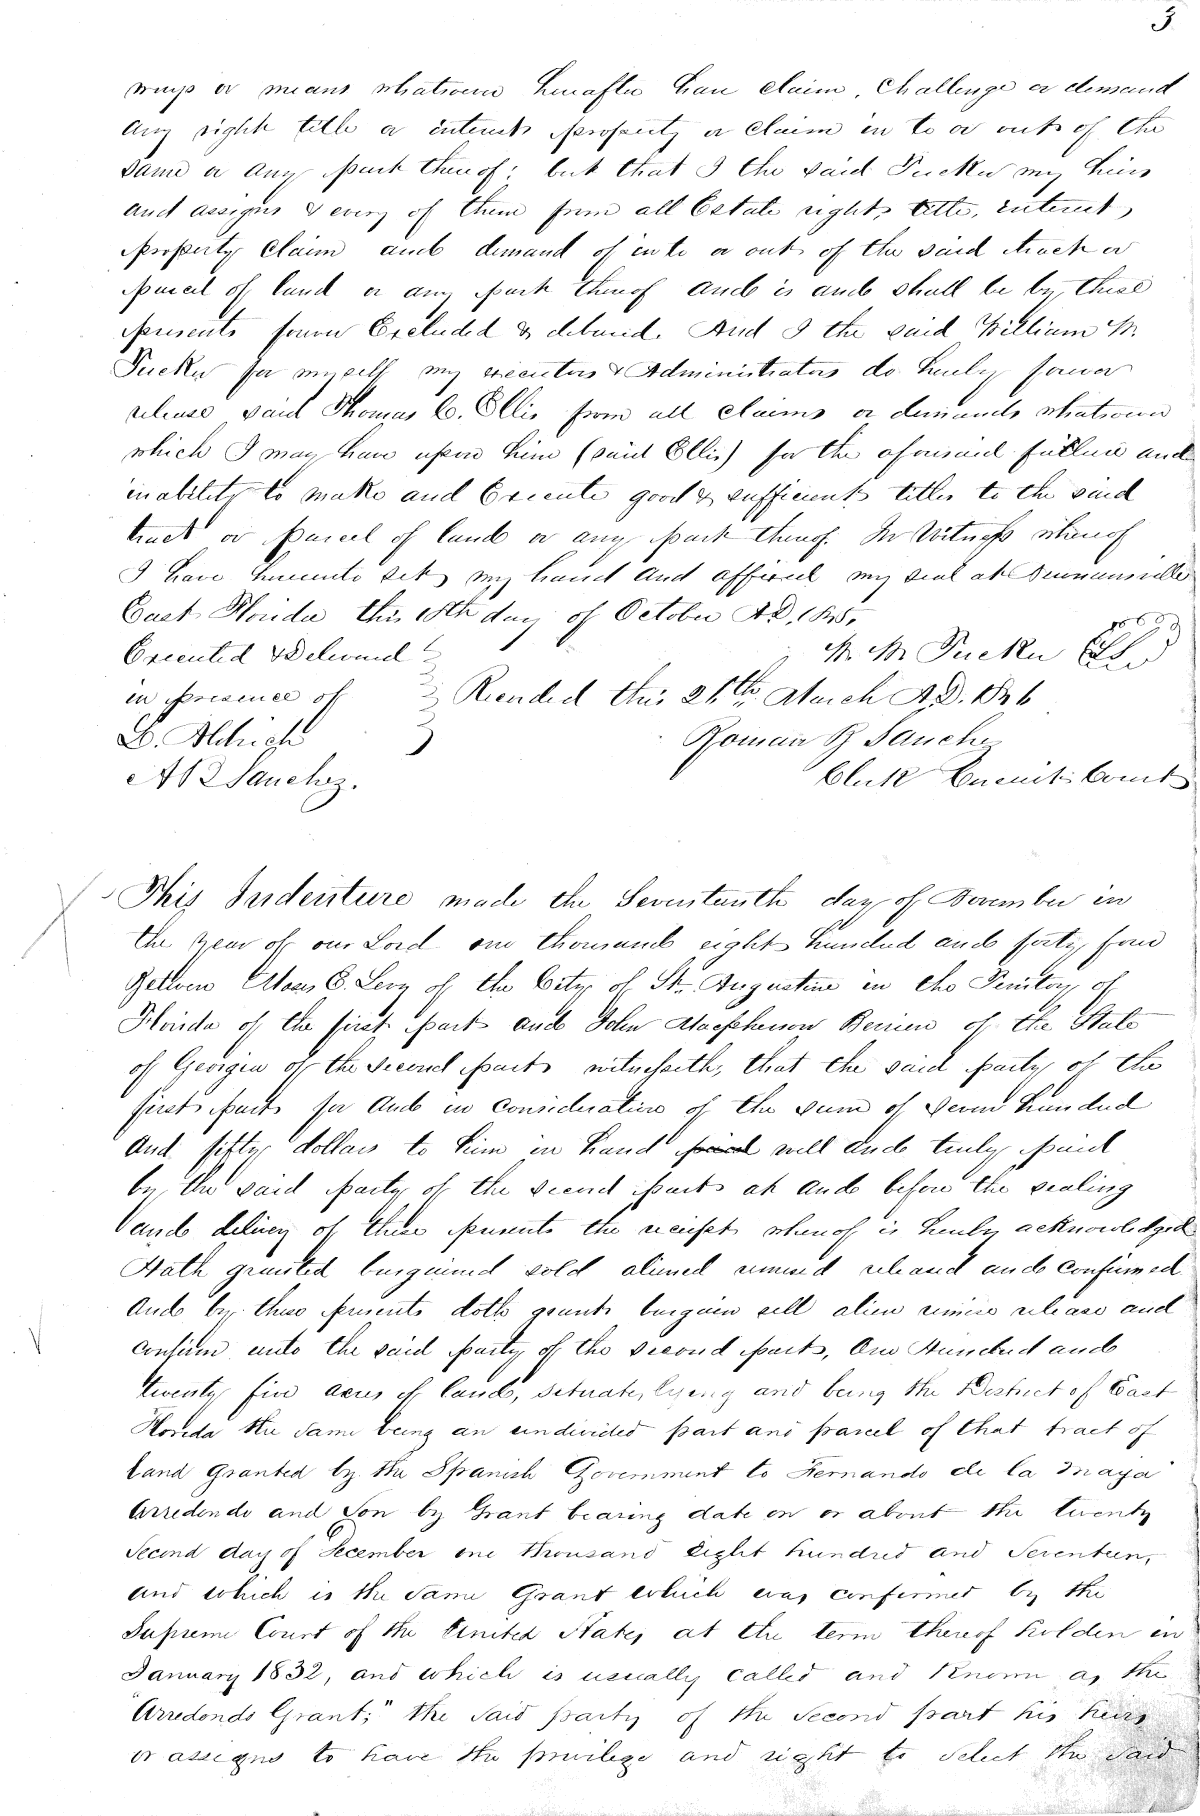 3
ways or means whatsoever hereafter have claim, challenge or demand
any right title or interest property or claim in to or out of the
same or any part thereof; but that I the said Tucker my heirs
and assigns & every of them from all Estate right, title, interest,
property claim and demand of in to or out of the said tract or
parcel of land or any part thereof and is and shall be by these
presents forever Excluded & debared. And I the said William M.
Tucker for myself my executors & Administrators do hereby forever
release said Thomas C. Ellis from all claims or demands whatsoever
which I may have upon him (said Ellis) for the aforesaid failure and
inability to make and Execute good & sufficient titles to the said
tract or parcel of land or any part thereof. In Witness whereof
I have hereunto set my hand and affixed my seal at Newnansville
East Florida this 18th day of October A.D. 1845.
Executed & Delivered W. M. Tucker
in presence of Recorded this 21th March A.D. 1846
L. Aldrich Roman R Sanchez
A R Sanchez. Clerk Circuit Court
This Indenture made the Seventeenth day of November in
the Year of our Lord one thousand eight hundred and forty four
Between Moses E. Levy of the City of St. Augustine in the Territory of
Florida of the first part and John Macpherson Berrien of the State
of Georgia of the second part witnesseth, that the said party of the
first part for and in consideration of the sum of seven hundred
and fifty dollars to him in hand paid well and truly paid
by the said party of the second part at and before the sealing
and delivery of these presents the receipt whereof is hereby acknowledged
Hath granted bargained sold aliened remised released and confirmed
and by these presents doth grant bargain sell alien remise release and
confirm unto the said party of the second part, One Hundred and
twenty five acres of land, situate, lyeng and being the District of East
Florida the same being an undivided part and parcel of that tract of
land granted by the Spanish Government to Fernando de la Maza
Arredondo and Son by Grant bearing date on or about the twenty
second day of December one thousand eight hundred and Seventeen,
and which is the same Grant which was confirmed by the
Supreme Court of the United States at the term thereof holden in
January 1832, and which is usually called and Known as the
"Arredondo Grant;" the said party of the second part his heirs
or assigns to have the privilege and right to select the said